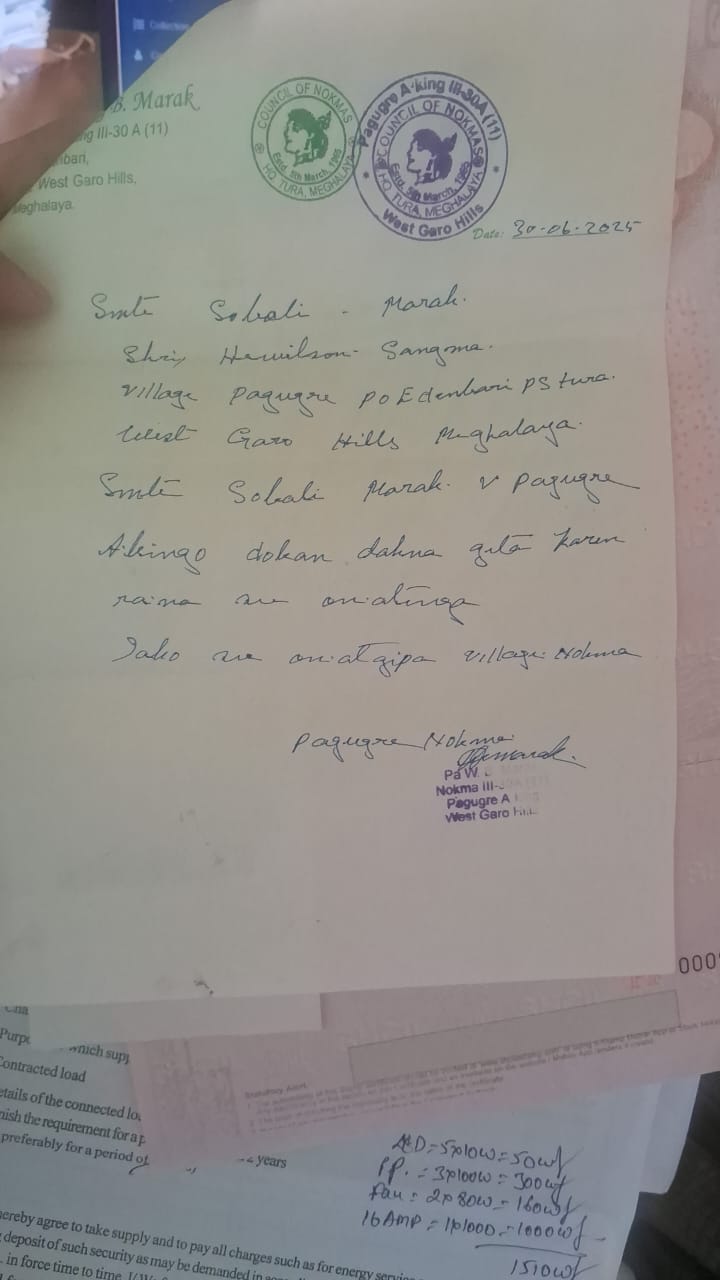 B. Marak
ng III-30 A (11)
nbari,
West Garo Hills,
Meghalaya.
COUNCIL OF NOKMAS
Estd. 5th March, 1965
HQ. TURA, MEGHALAYA
Pagugre A·king III-30A (11)
COUNCIL OF NOKMAS
Estd. 5th March, 1965
HQ. TURA, MEGHALAYA
West Garo Hills
Date: 30-06-2025
Smti Sobali - Marak.
Shri, Hewilson- Sangma.
Village Pagugre PO Edenbari PS tura.
West Garo Hills Meghalaya.
Smti Sobali Marak. Pagugre
A·kingo dokan dakna gita karen
raina an on·atenga
Iako an on·atgipa village Nokma
Pagugre Nokma
Pa W.
Nokma III-
Pagugre A
West Garo Hill
000
Purpo
which supp
Contracted load
etails of the connected lo
nish the requirement for a p
preferably for a period of
years
Statutory Alert:
hereby agree to take supply and to pay all charges such as for energy
deposit of such security as may be demanded in
in force time to time.
= 5x10w = 50w
P.P. = 3x100w = 300w
Fan = 2x80w = 160w
16 AMP = 1x1000 = 1000w
1510w